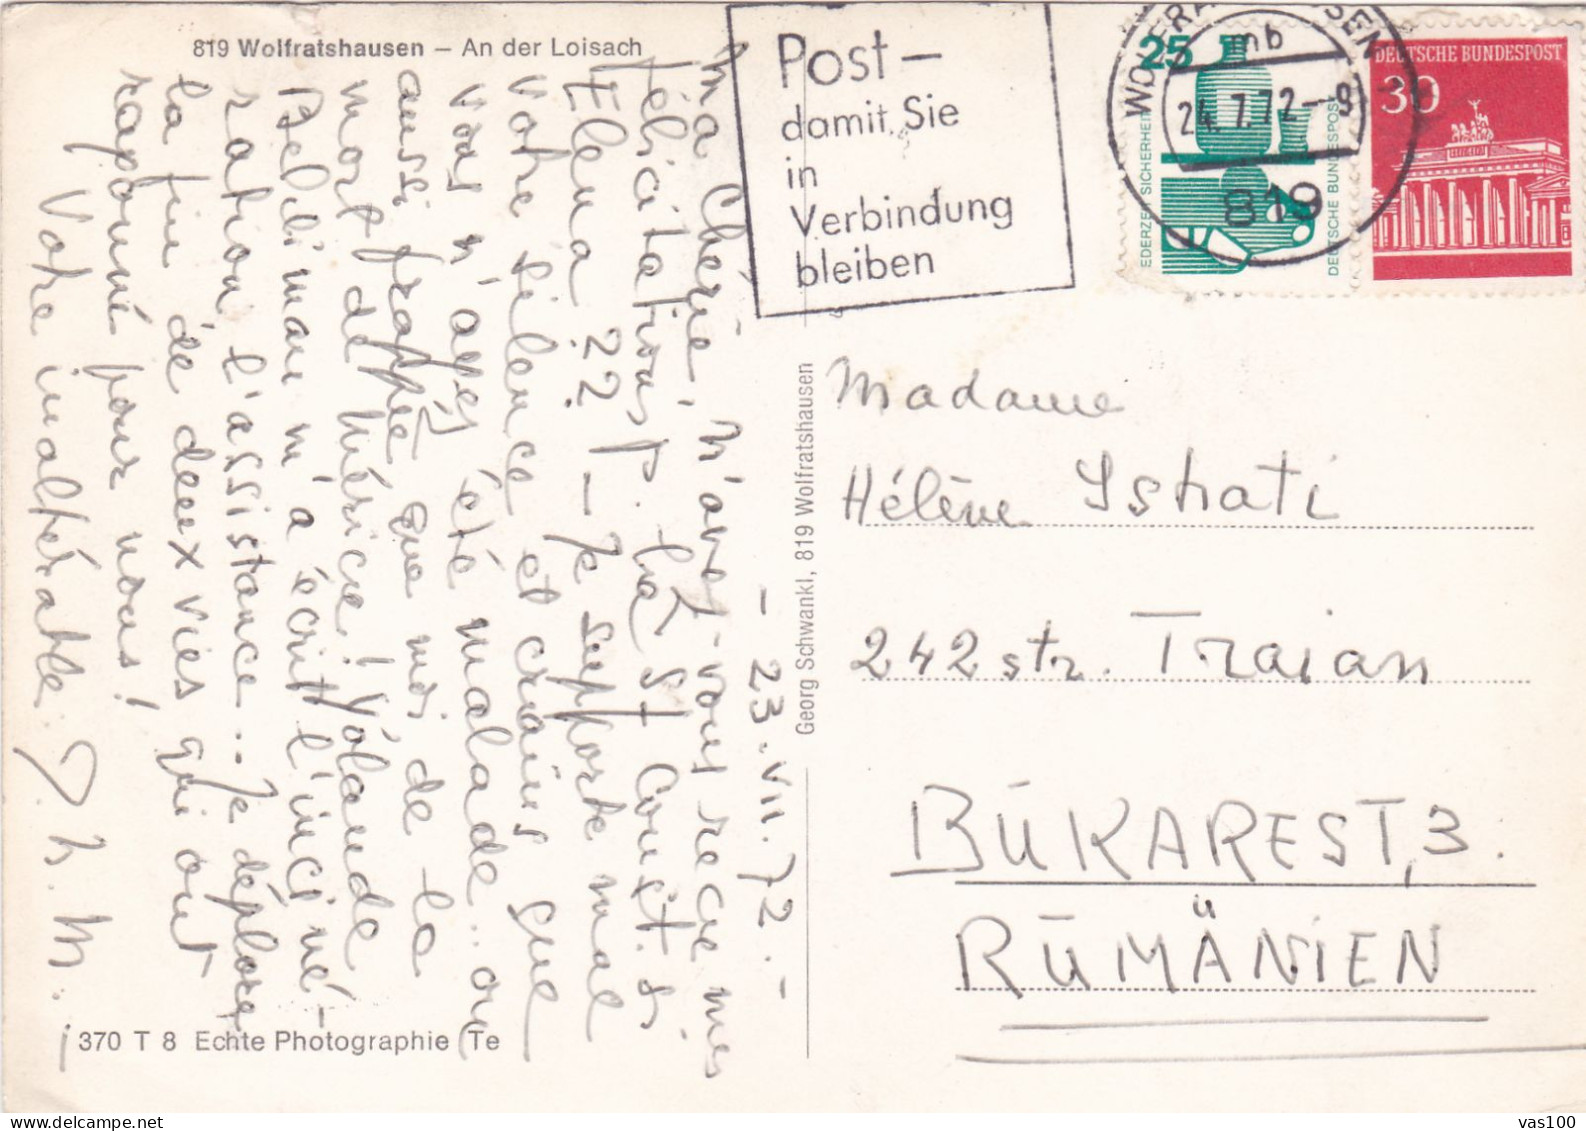 819 Wolfratshausen – An der Loisach
Post –
damit Sie
in
Verbindung
bleiben
WOLFRATSHAUSEN
mb
24.7.72--9
819
25
DEUTSCHE BUNDESPOST
DEUTSCHE BUNDESPOST
30
- 23.VII.72.-
Ma Chérie, n'avez-vous reçu mes
félicitations p. la St Const. si
Elena ?? - Je supporte mal
votre silence et crains que
vous n'ayez été malade.. ou
aussi frappée que moi de la
mort de Méricie! Yolande
Beldiman m'a écrit l'inciné-
ration l'assistance.. Je déplore
la fin de deux vies qui ont
rayonné pour nous!
Votre inaltérable
Georg Schwankl, 819 Wolfratshausen
Madame
Hélène Ishati
242 str. Traian
BUKAREST, 3.
RUMÄNIEN
370 T 8 Echte Photographie Te